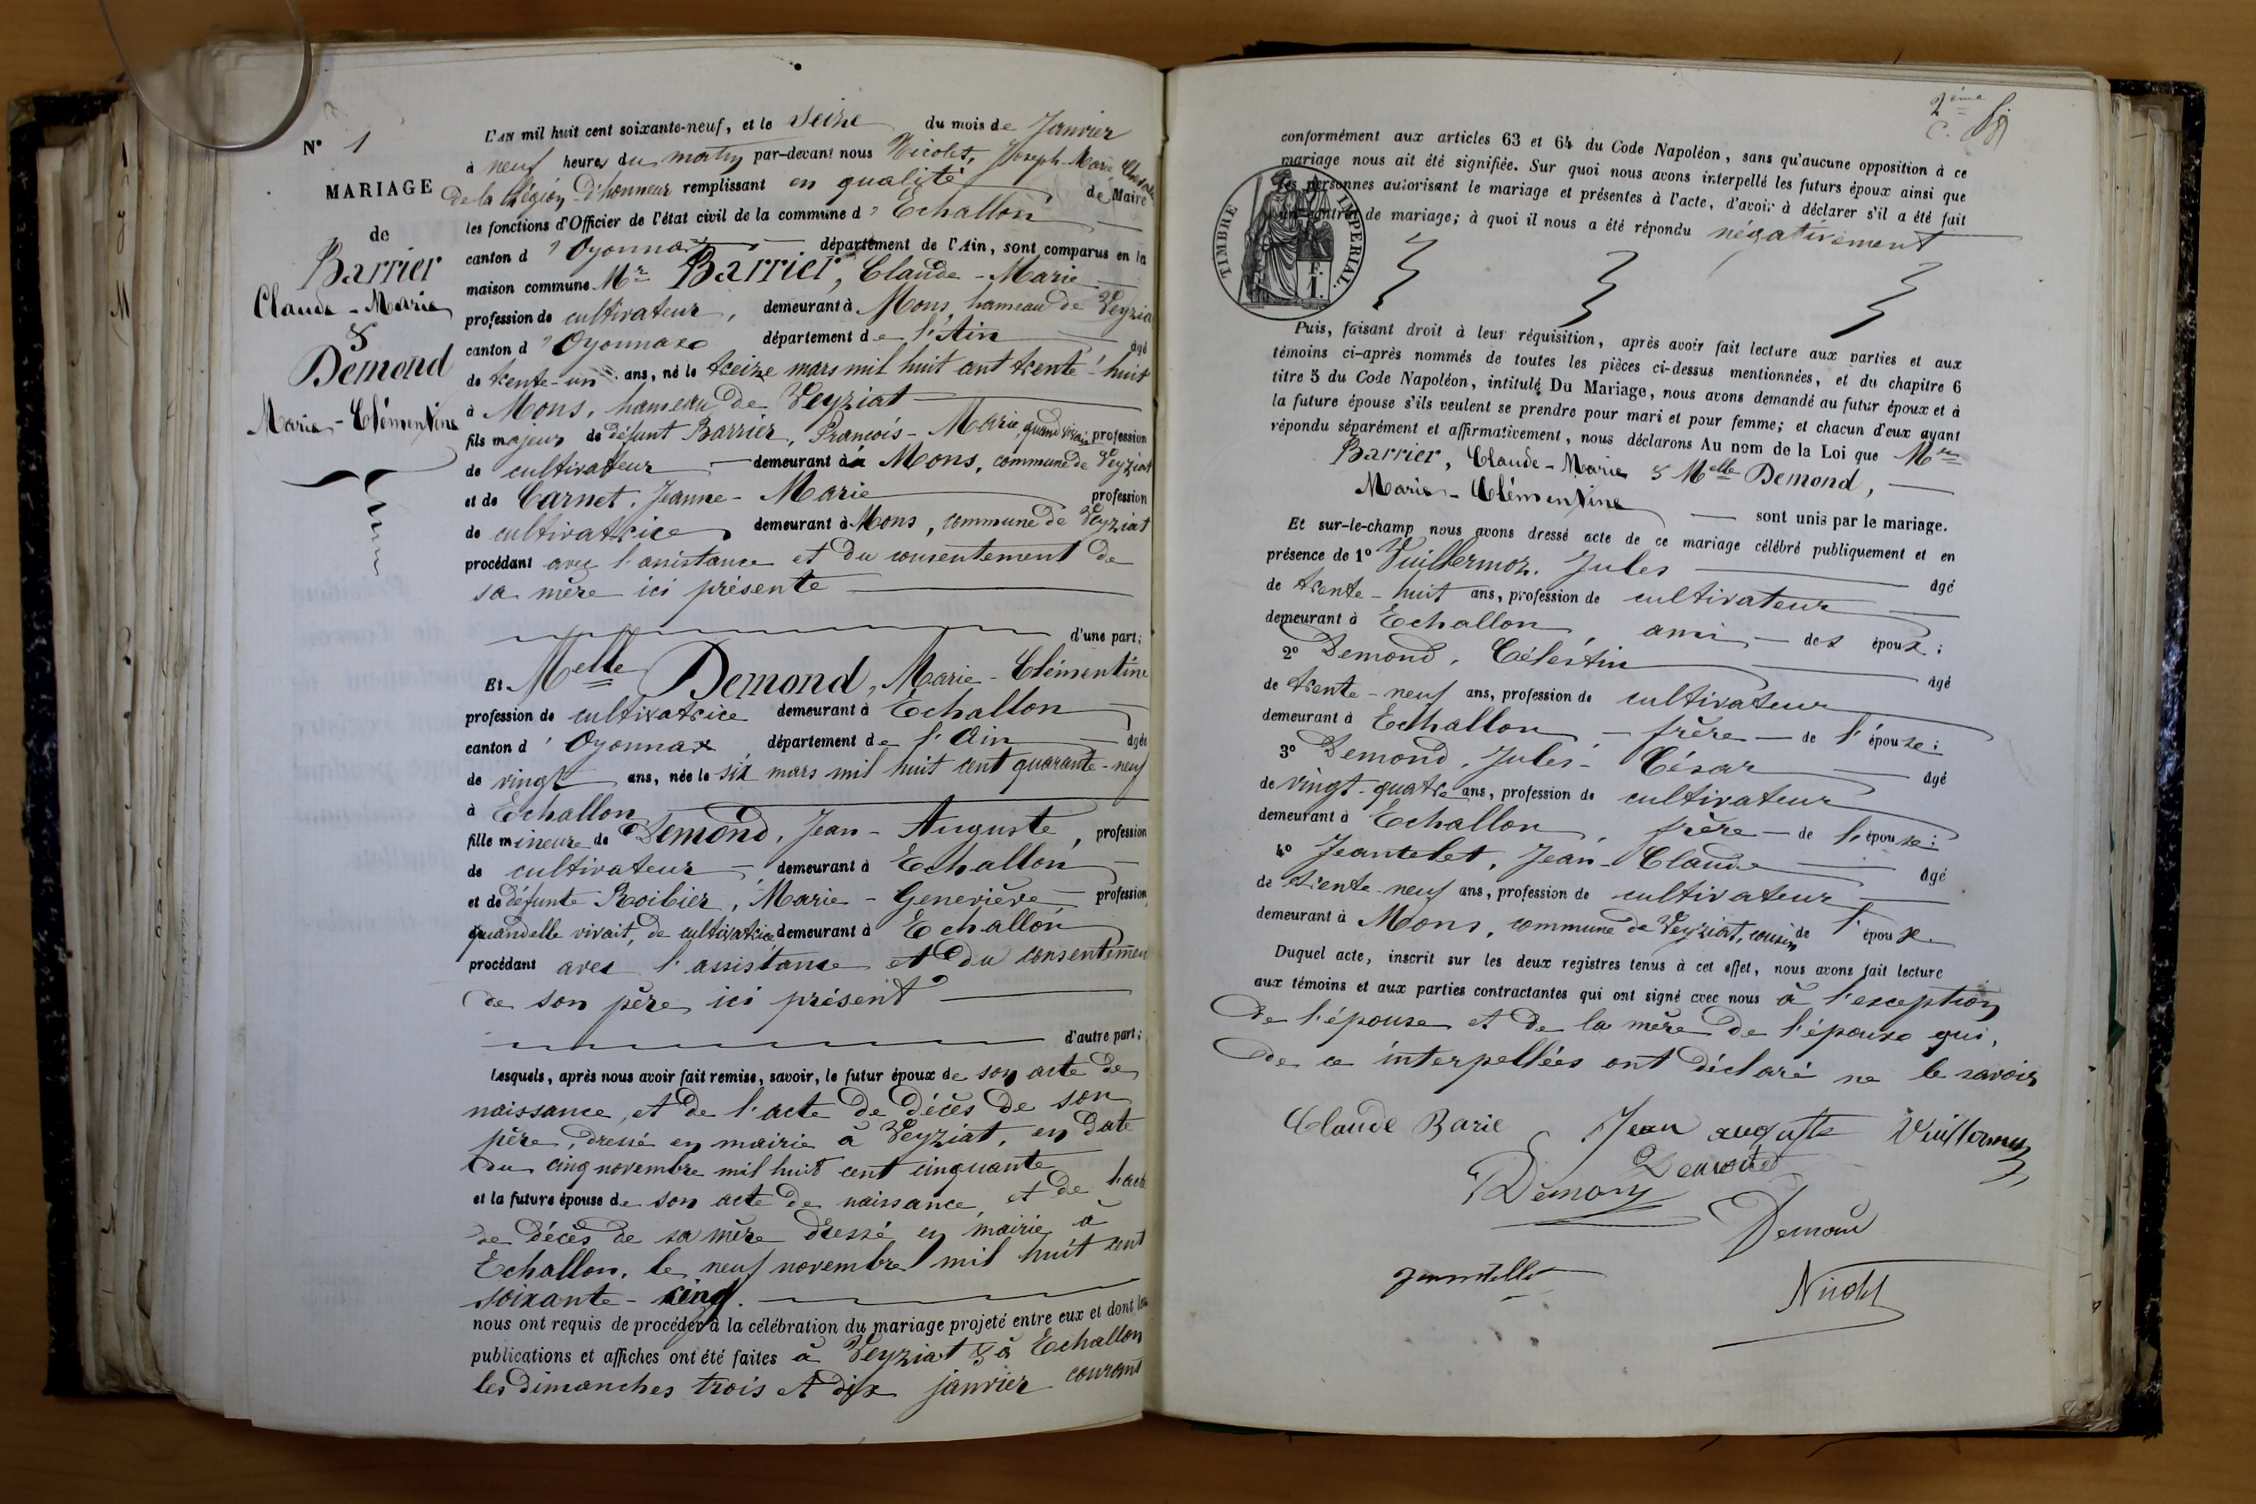 N° 1
MARIAGE
de
Barrier
Claude - Marie
&
Demond
Marie - Clémentine
L'AN mil huit cent soixante-neuf, et le seize du mois de Janvier
à neuf heures du matin par-devant nous Nicolet, Joseph-Marie Chevalier
de la Légion d'honneur remplissant en qualité de Maire
les fonctions d'Officier de l'état civil de la commune d'Echallon
canton d'Oyonnax département de l'Ain, sont comparus en la
maison commune Mr Barrier, Claude - Marie
profession de cultivateur, demeurant à Mons, hameau de Veyziat
canton d'Oyonnax département de l'Ain âgé
de trente-un ans, né le treize mars mil huit cent trente-huit
à Mons, hameau de Veyziat
fils majeur de défunt Barrier, François - Marie, quand vivait profession
de cultivateur demeurant à Mons, commune de Veyziat
et de Carnet, Jeanne - Marie profession
de cultivatrice demeurant à Mons, commune de Veyziat
procédant avec l'assistance et du consentement de
sa mère ici présente
d'une part;
Et Melle Demond, Marie - Clémentine
profession de cultivatrice demeurant à Echallon
canton d'Oyonnax département de l'Ain âgée
de vingt ans, née le six mars mil huit cent quarante-neuf
à Echallon
fille mineure de Demond, Jean - Auguste, profession
de cultivateur demeurant à Echallon
et de défunte Roibier, Marie - Geneviève profession,
quand elle vivait, de cultivatrice demeurant à Echallon
procédant avec l'assistance et du consentement
de son père ici présent
d'autre part;
Lesquels, après nous avoir fait remise, savoir, le futur époux de son acte de
naissance, et de l'acte de décès de son
père, dressé en mairie à Veyziat, en date
du cinq novembre mil huit cent cinquante
et la future épouse de son acte de naissance, et de l'acte
de décès de sa mère dressé en mairie à
Echallon, le neuf novembre mil huit cent
soixante - cinq.
nous ont requis de procéder à la célébration du mariage projeté entre eux et dont les
publications et affiches ont été faites à Veyziat & à Echallon
les dimanches trois et dix janvier courant
2ème
conformément aux articles 63 et 64 du Code Napoléon, sans qu'aucune opposition à ce
mariage nous ait été signifiée. Sur quoi nous avons interpellé les futurs époux ainsi que
les personnes autorisant le mariage et présentes à l'acte, d'avoir à déclarer s'il a été fait
un contrat de mariage; à quoi il nous a été répondu négativement
TIMBRE IMPERIAL.
F.
I.
Puis, faisant droit à leur réquisition, après avoir fait lecture aux parties et aux
témoins ci-après nommés de toutes les pièces ci-dessus mentionnées, et du chapitre 6
titre 5 du Code Napoléon, intitulé Du Mariage, nous avons demandé au futur époux et à
la future épouse s'ils veulent se prendre pour mari et pour femme; et chacun d'eux ayant
répondu séparément et affirmativement, nous déclarons Au nom de la Loi que Mr
Barrier, Claude - Marie & Melle Demond,
Marie - Clémentine sont unis par le mariage.
Et sur-le-champ nous avons dressé acte de ce mariage célébré publiquement et en
présence de 1° Vuillermoz, Jules âgé
de trente-huit ans, profession de cultivateur
demeurant à Echallon, ami des époux;
2° Demond, Célestin âgé
de trente-neuf ans, profession de cultivateur
demeurant à Echallon - frère - de l'épouse;
3° Demond, Jules - César âgé
de vingt-quatre ans, profession de cultivateur
demeurant à Echallon, frère - de l'épouse;
4° Jeantelet, Jean - Claude âgé
de trente-neuf ans, profession de cultivateur
demeurant à Mons, commune de Veyziat, cousin de l'épouse
Duquel acte, inscrit sur les deux registres tenus à cet effet, nous avons fait lecture
aux témoins et aux parties contractantes qui ont signé avec nous à l'exception
de l'épouse et de la mère de l'époux qui,
de ce interpellées ont déclaré ne le savoir
Claude Barie Jean auguste Vuillermoz
Demond
Demond
Demond
Jeantellet
Nicolet